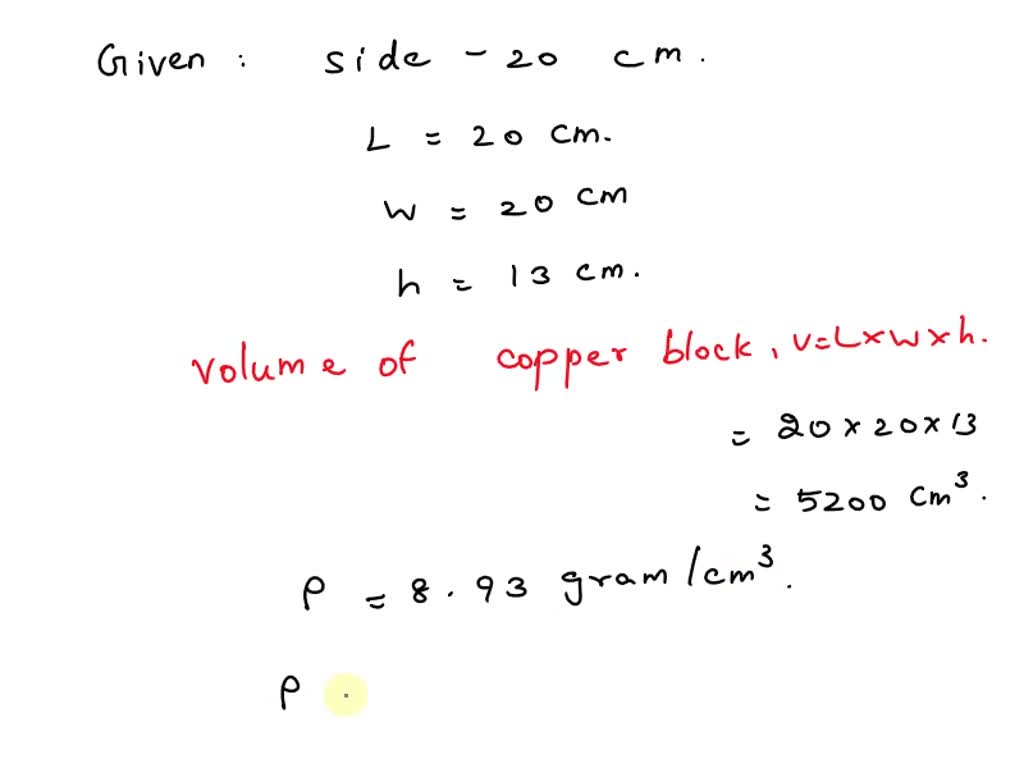 Given : side - 20 cm.
L = 20 cm.
W = 20 cm
h = 13 cm.
volume of copper block, V=L×W×h.
= 20×20×13
= 5200 cm³.
ρ = 8.93 gram/cm³.
ρ